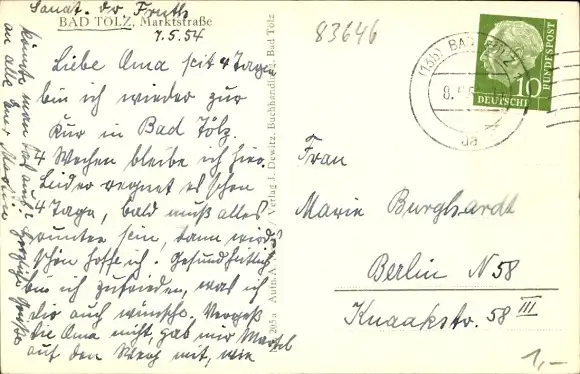 Sanat. Dr Fruth
BAD TÖLZ, Marktstraße
7.5.54
Liebe Oma seit 4 Tagen
bin ich wieder zur
Kur in Bad Tölz.
4 Wochen bleibe ich hier.
Leider regnet es schon
4 Tage, bald muß alles
runter sein, dann wird es
schön hoffe ich. Gesundheitlich
bin ich zufrieden, was ich
dir auch wünsche. Vergeß
die Oma nicht, gab mir
auf den Weg mit, wie
könnte man das auch. Herzliche Grüße
an alle Euer
Verlag J. Dewitz, Buchhandlung, Bad Tölz
83646
(13b) BAD TÖLZ
aa
10
DEUTSCHE
BUNDESPOST
Frau
Marie Burghardt
Berlin N 58
Knaakstr. 58 III
1,-